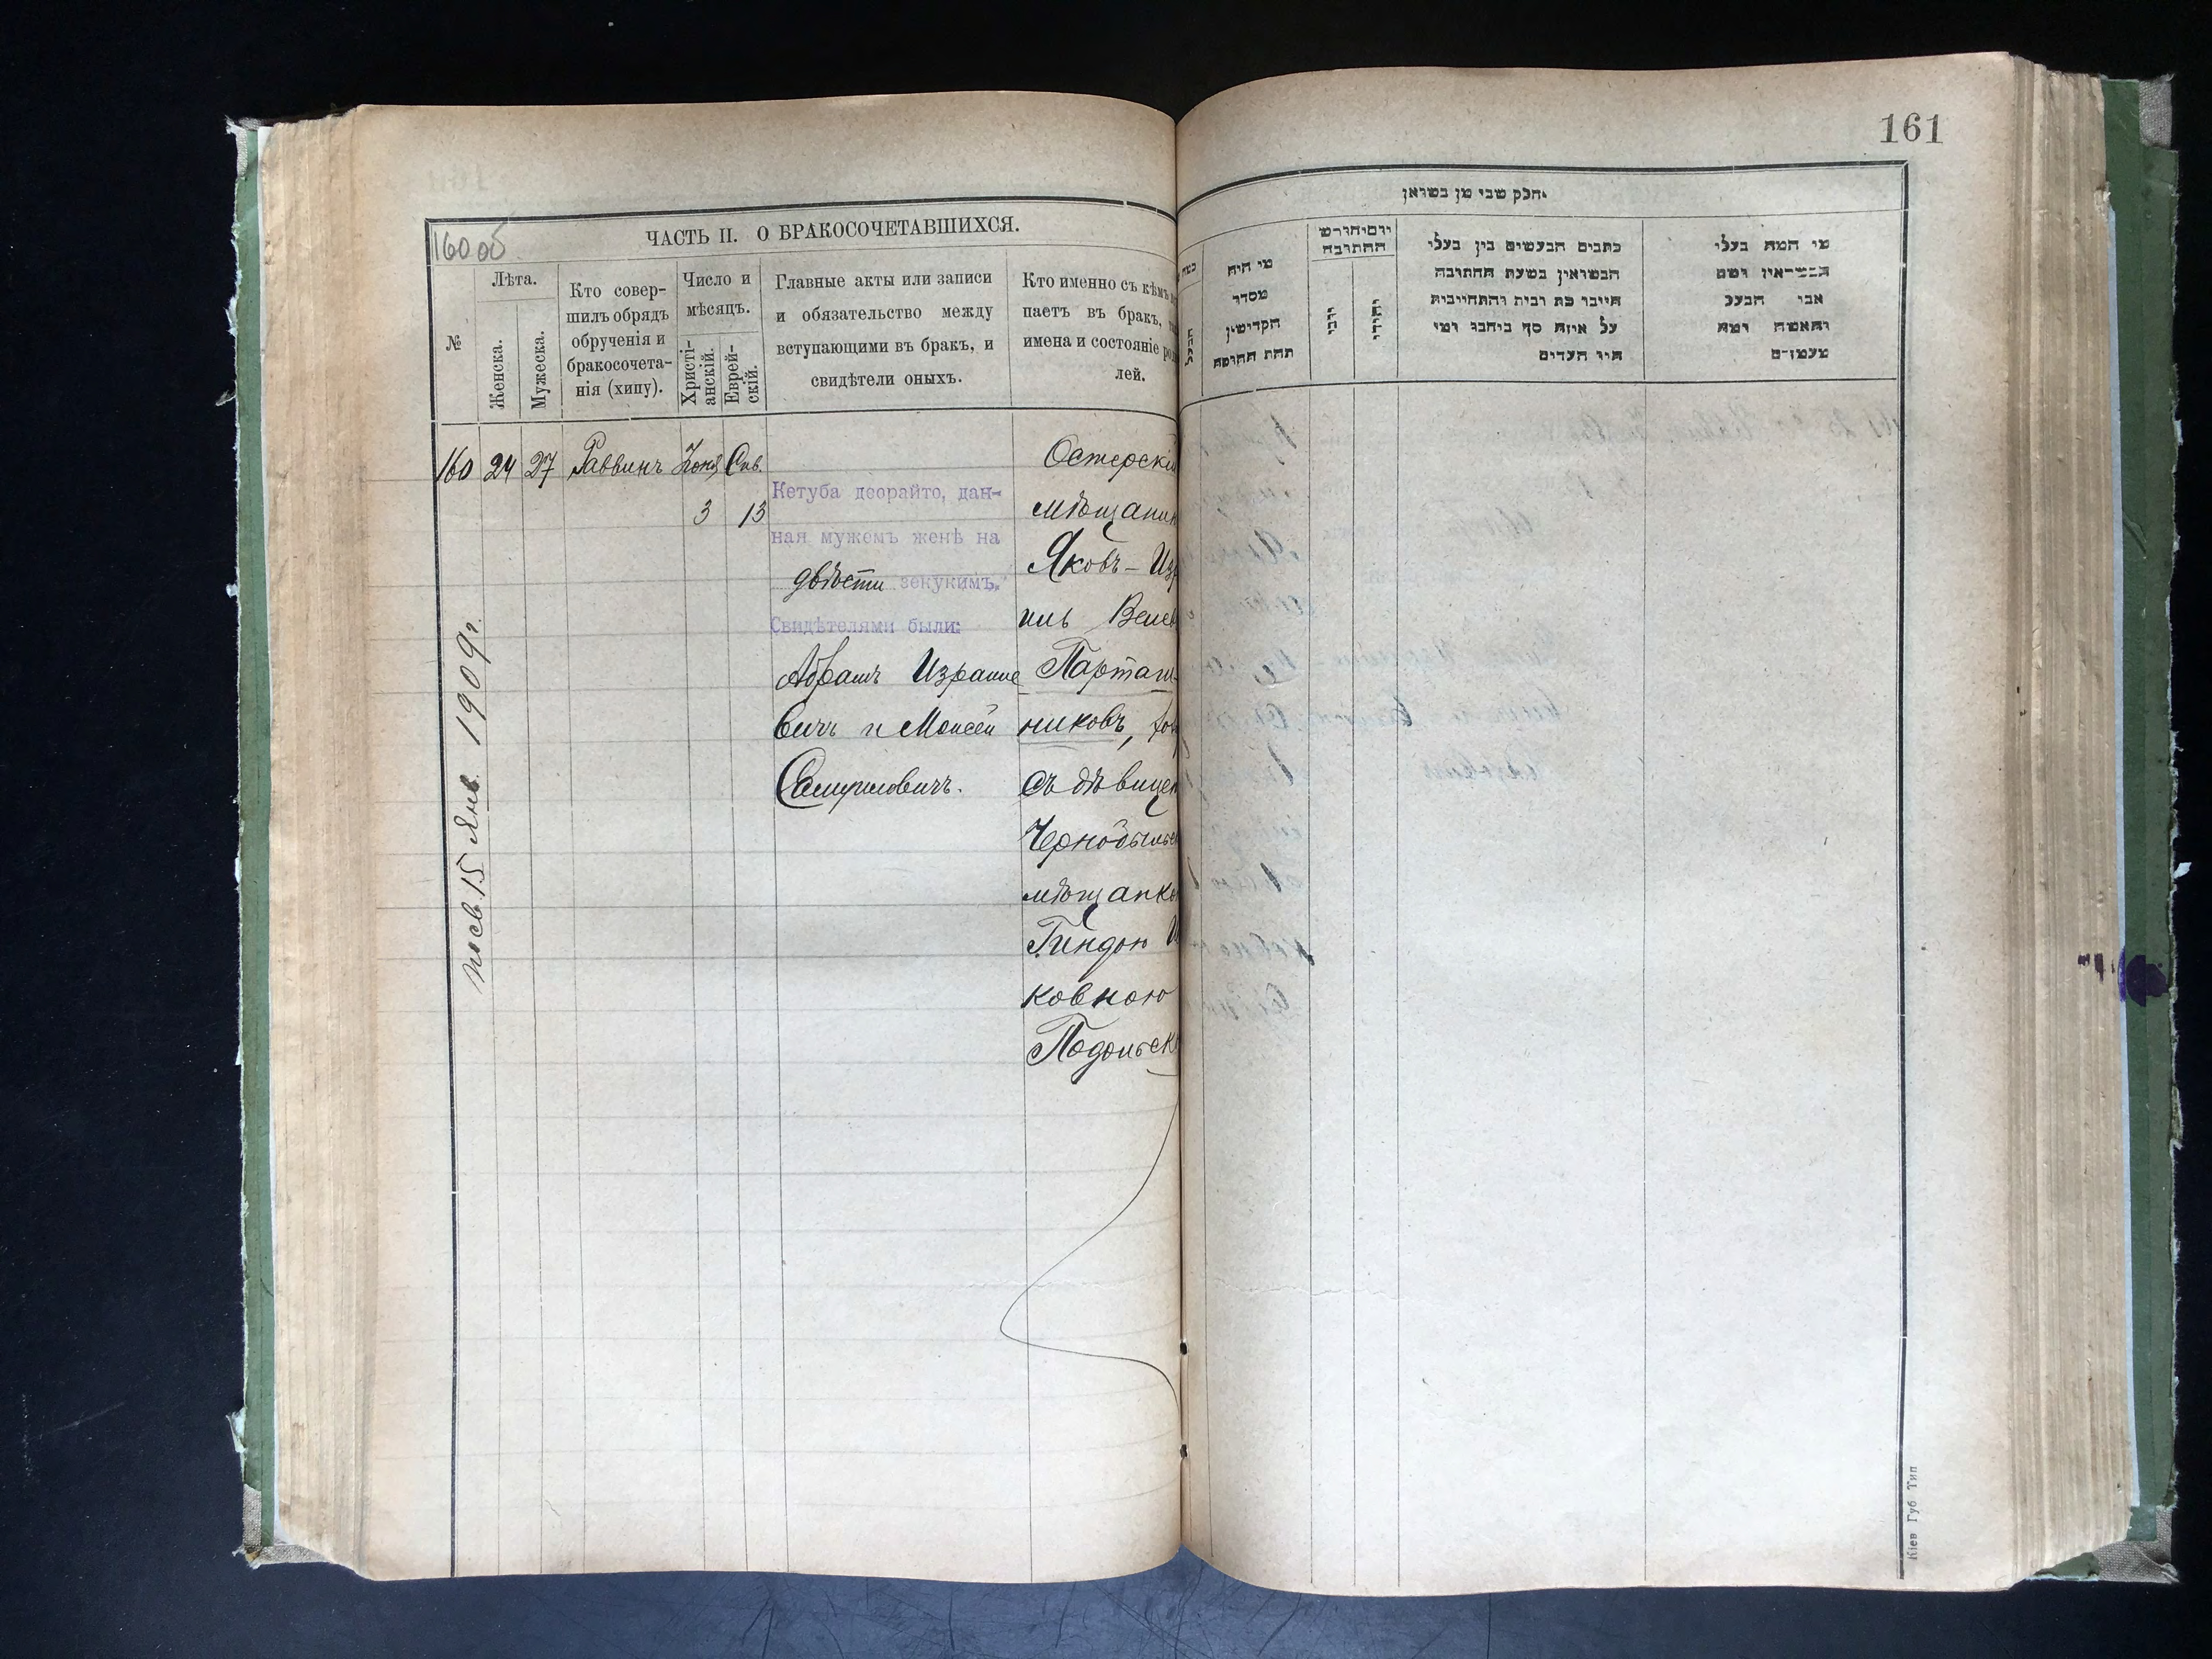 161
160 об
ЧАСТЬ II. О БРАКОСОЧЕТАВШИХСЯ.
№
Лѣта.
Женска.
Мужеска.
Кто совер-
шилъ обрядъ
обрученія и
бракосочета-
нія (хипу).
Число и
мѣсяцъ.
Христі-
анскій.
Еврей-
скій.
Главные акты или записи
и обязательство между
вступающими въ бракъ, и
свидѣтели оныхъ.
Кто именно съ кѣмъ
паетъ въ бракъ,
имена и состояніе
лей.
160 24 27 Раввинъ
3 13
Кетуба деорайто, дан-
ная мужемъ женѣ на
двѣсти зекукимъ.
Свидѣтелями были:
Абрамъ Израиле
вичъ и Моисей
Самуиловичъ.
Остерскій
мѣщанин
Яковъ-Из
иль
Парташ-
никовъ,
съ дѣвицей
Чернобыльс
мѣщанко
ковною
Подольск
15 Янв. 1909 г.
חלק שני מן נשואין.
מי היה
מסדר
הקדושין
תחת החופה
יום וחודש
החתונה
כתבים הנעשים בין בעלי
הנשואין בשעת החתונה
על איזה סך ומי
היו העדים
מי המה בעלי
אבי הבעל
והאשה ומה
מעמדם
Кіев Губ Тип